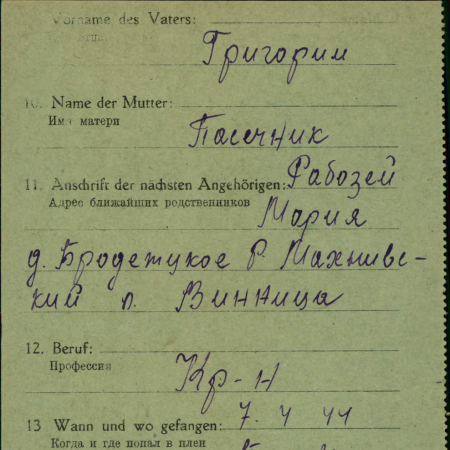 Vorname des Vaters:
Григорий
10. Name der Mutter:
Имя матери
Пасечник
11. Anschrift der nächsten Angehörigen: Рабозей
Адрес ближайших родственников
Мария
д. Бродецкое Р. Махнивс-
кий п. Винница
12. Beruf:
Профессия
Кр-н
13 Wann und wo gefangen: 7. 4 44
Когда и где попал в плен